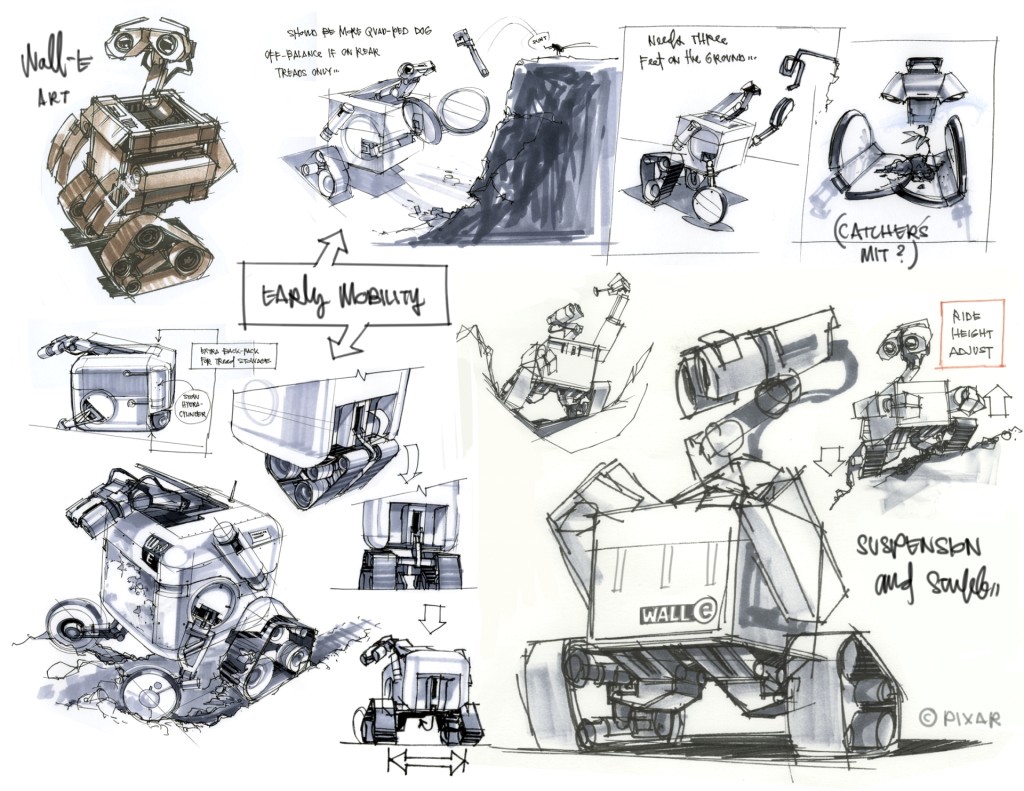 Wall-E
ART
SHOULD BE MORE QUAD-PED DOG
OFF-BALANCE IF ON REAR
TREADS ONLY...
NEEDS THREE
FEET ON THE GROUND...
(CATCHER'S
MIT?)
EARLY MOBILITY
EXTRA BACK-PACK
FOR TREAD STOWAGE
STOW
HYDRA-
CYLINDER
RIDE
HEIGHT
ADJUST
SUSPENSION
and
WALL E
© PIXAR